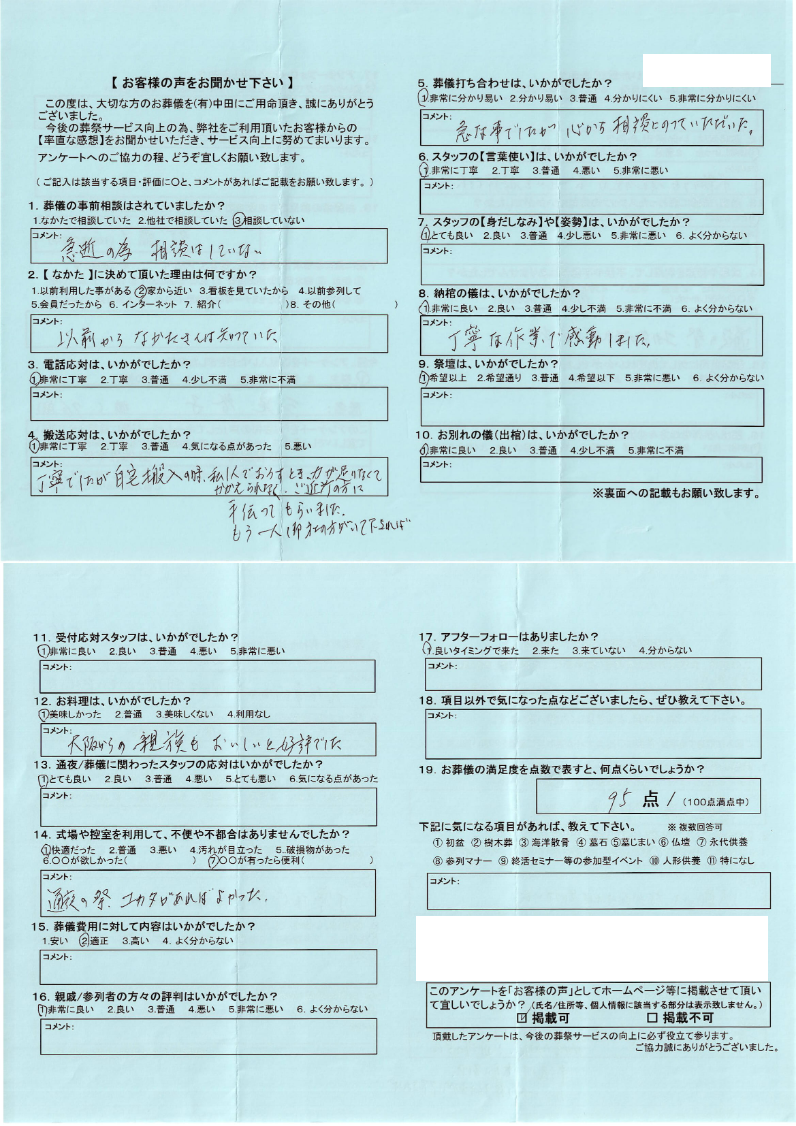 【 お客様の声をお聞かせ下さい 】
この度は、大切な方のお葬儀を(有)中田にご用命頂き、誠にありがとう
ございました。
今後の葬祭サービス向上の為、弊社をご利用頂いたお客様からの
【率直な感想】をお聞かせいただき、サービス向上に努めてまいります。
アンケートへのご協力の程、どうぞ宜しくお願い致します。
（ご記入は該当する項目・評価に○と、コメントがあればご記載をお願い致します。）
1. 葬儀の事前相談はされていましたか？
1.なかたで相談していた 2.他社で相談していた 3.相談していない
コメント:
急逝の為 相談はしていない
2.【 なかた 】に決めて頂いた理由は何ですか？
1.以前利用した事がある 2.家から近い 3.看板を見ていたから 4.以前参列して
5.会員だったから 6. インターネット 7. 紹介（ ）8. その他（ ）
コメント:
以前からなかたさんは知っていた
3. 電話応対は、いかがでしたか？
1.非常に丁寧 2.丁寧 3.普通 4.少し不満 5.非常に不満
コメント:
4. 搬送応対は、いかがでしたか？
1.非常に丁寧 2.丁寧 3.普通 4.気になる点があった 5.悪い
コメント:
丁寧でしたが自宅搬入の時、私1人でおろすとき、力が足りなくて
かかえられなく、ご近所の方に
手伝ってもらいました。
もう一人御社の方がいて下されば
5. 葬儀打ち合わせは、いかがでしたか？
1.非常に分かり易い 2.分かり易い 3.普通 4.分かりにくい 5.非常に分かりにくい
コメント:
急な事でしたが 心から相談にのっていただいた。
6. スタッフの【言葉使い】は、いかがでしたか？
1.非常に丁寧 2.丁寧 3.普通 4.悪い 5.非常に悪い
コメント:
7. スタッフの【身だしなみ】や【姿勢】は、いかがでしたか？
1.とても良い 2.良い 3.普通 4.少し悪い 5.非常に悪い 6. よく分からない
コメント:
8. 納棺の儀は、いかがでしたか？
1.非常に良い 2.良い 3.普通 4.少し不満 5.非常に不満 6. よく分からない
コメント:
丁寧な作業で感動しました。
9. 祭壇は、いかがでしたか？
1.希望以上 2.希望通り 3.普通 4.希望以下 5.非常に悪い 6. よく分からない
コメント:
10. お別れの儀（出棺）は、いかがでしたか？
1.非常に良い 2.良い 3.普通 4.少し不満 5.非常に不満
コメント:
※裏面への記載もお願い致します。
11. 受付応対スタッフは、いかがでしたか？
1.非常に良い 2.良い 3.普通 4.悪い 5.非常に悪い
コメント:
12. お料理は、いかがでしたか？
1.美味しかった 2.普通 3.美味しくない 4.利用なし
コメント:
大阪からの親族もおいしいと好評でした
13. 通夜/葬儀に関わったスタッフの応対はいかがでしたか？
1.とても良い 2.良い 3.普通 4.悪い 5.とても悪い 6.気になる点があった
コメント:
14. 式場や控室を利用して、不便や不都合はありませんでしたか？
1.快適だった 2.普通 3.悪い 4.汚れが目立った 5..破損物があった
6.○○が欲しかった（ ） 7.○○が有ったら便利（ ）
コメント:
通夜の祭、ユカタがあればよかった。
15. 葬儀費用に対して内容はいかがでしたか？
1.安い 2.適正 3.高い 4. よく分からない
コメント:
16. 親戚/参列者の方々の評判はいかがでしたか？
1.非常に良い 2.良い 3.普通 4.悪い 5.非常に悪い 6. よく分からない
コメント:
17. アフターフォローはありましたか？
1.良いタイミングで来た 2.来た 3.来ていない 4.分からない
コメント:
18. 項目以外で気になった点などございましたら、ぜひ教えて下さい。
コメント:
19. お葬儀の満足度を点数で表すと、何点くらいでしょうか？
95 点 （100点満点中）
下記に気になる項目があれば、教えて下さい。 ※ 複数回答可
① 初盆 ② 樹木葬 ③ 海洋散骨 ④ 墓石 ⑤墓じまい ⑥ 仏壇 ⑦ 永代供養
⑧ 参列マナー ⑨ 終活セミナー等の参加型イベント ⑩ 人形供養 ⑪ 特になし
コメント:
このアンケートを「お客様の声」としてホームページ等に掲載させて頂い
て宜しいでしょうか？（氏名/住所等、個人情報に該当する部分は表示致しません。）
☑ 掲載可 □ 掲載不可
頂戴したアンケートは、今後の葬祭サービスの向上に必ず役立て参ります。
ご協力誠にありがとうございました。